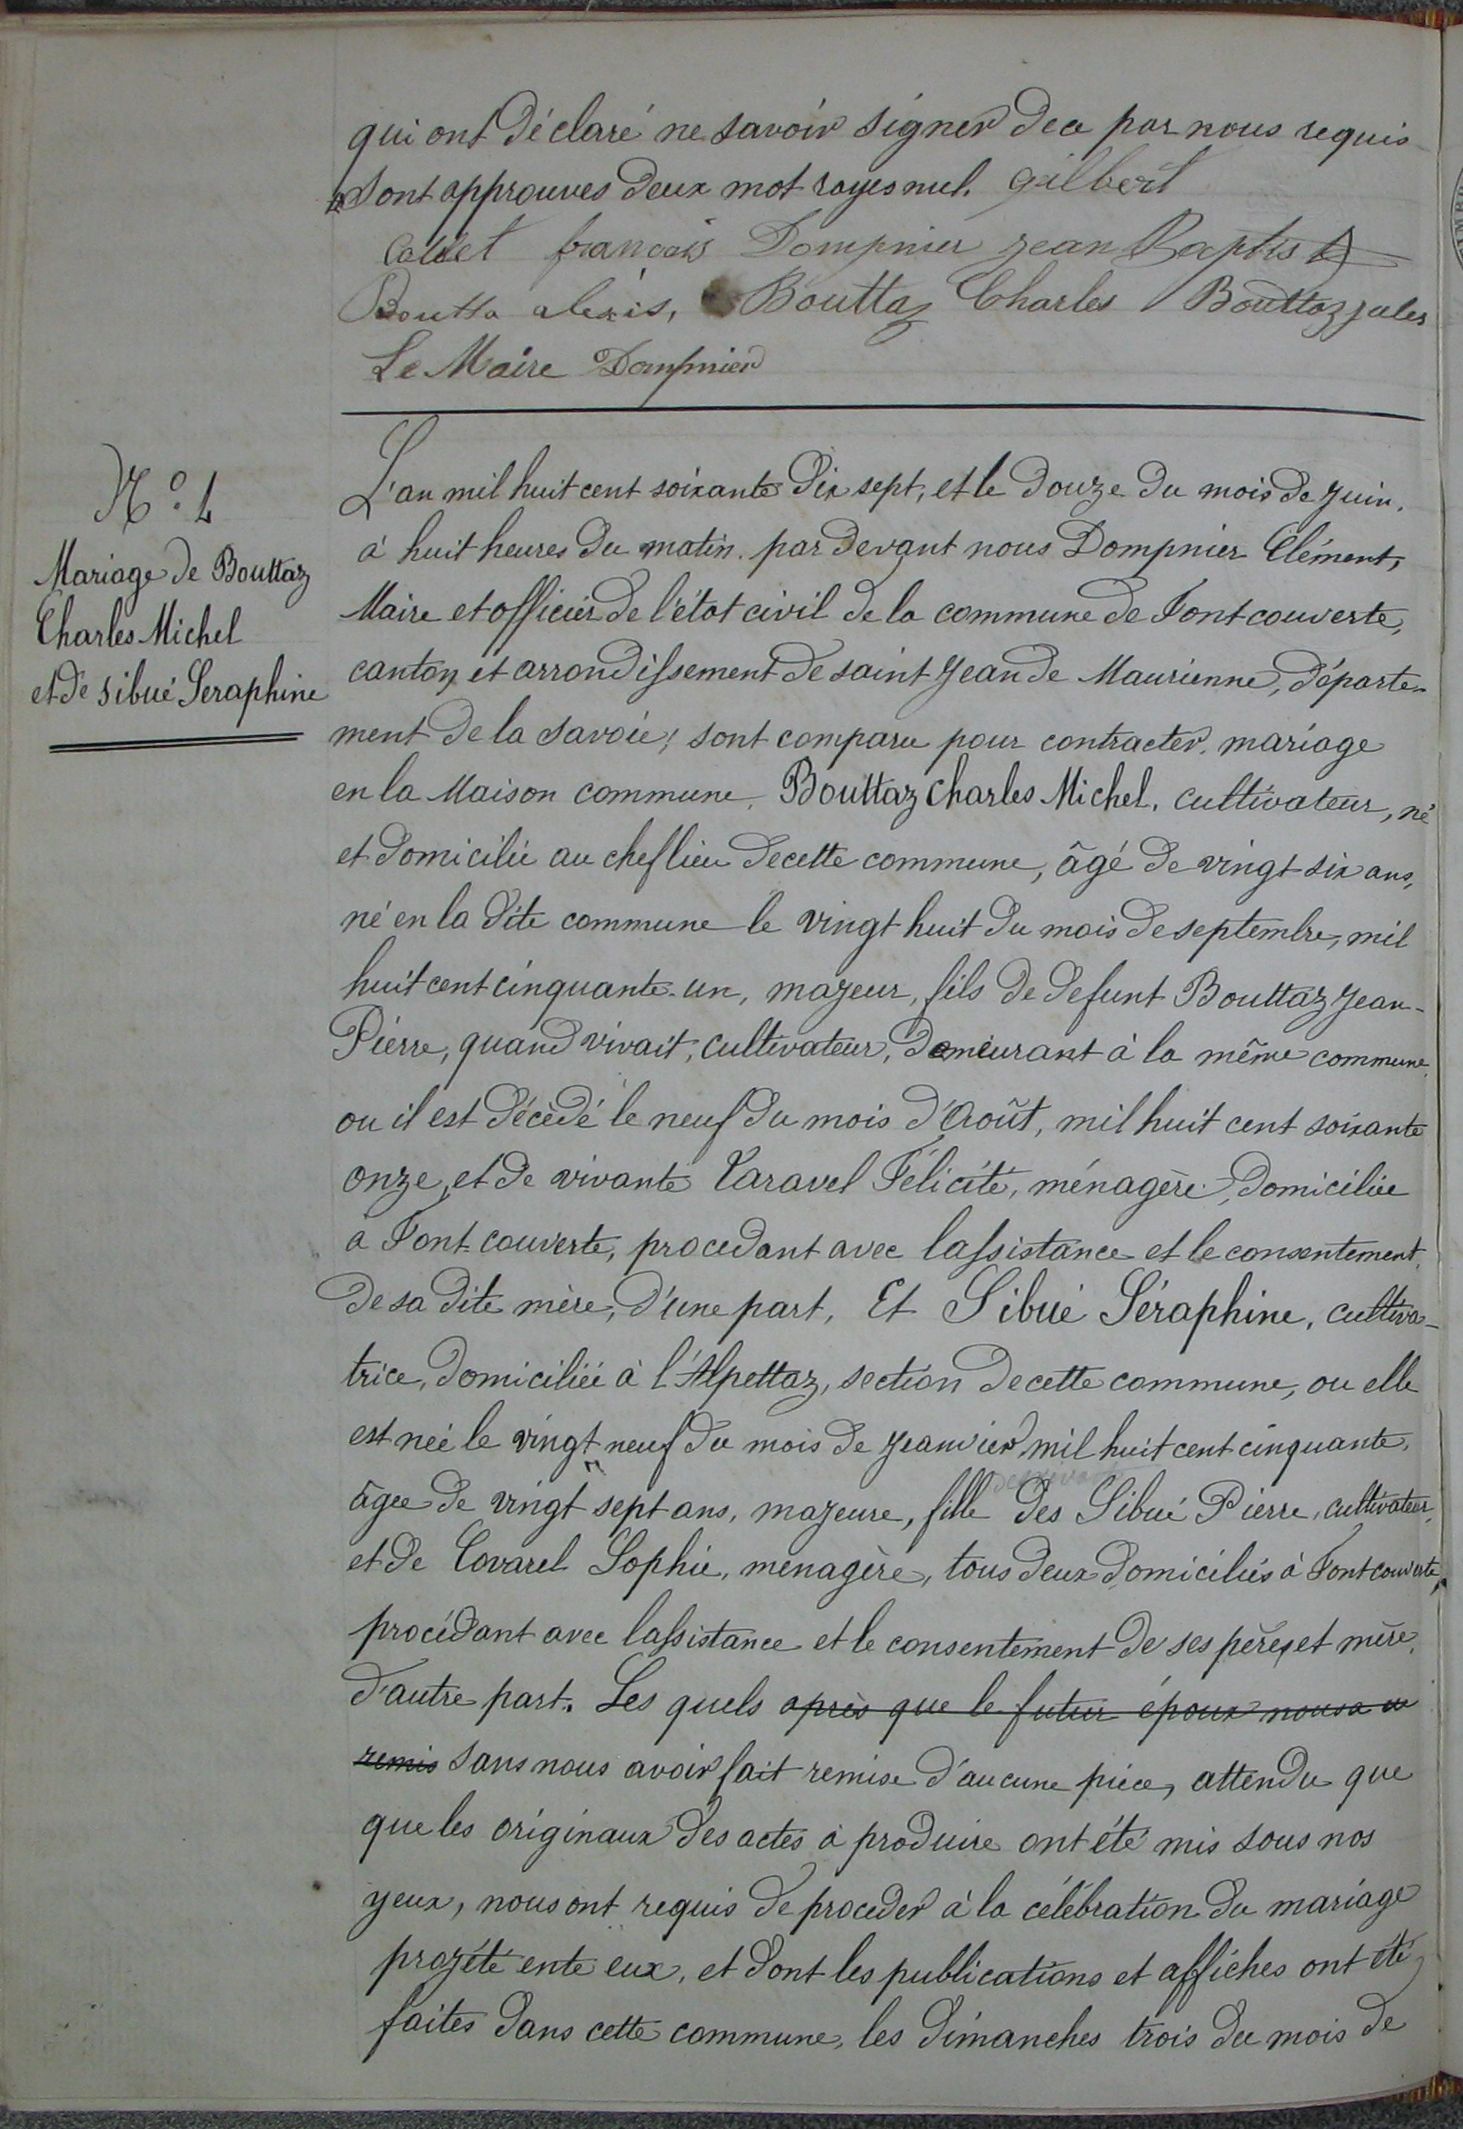 qui ont déclaré ne savoir signer de ce par nous requis
Sont approuves deux mot rayes nul. Gilbert
Collet francois Dompnier jean Baptis
Boutta alexis, Bouttaz Charles Bouttaz jules
Le Maire Dompnier
N° 4
Mariage de Bouttaz
Charles Michel
et de Sibué Seraphine
L'an mil huit cent soixante dix sept, et le douze du mois de juin,
à huit heures du matin. par devant nous Dompnier Clément,
Maire et officier de l'état civil de la commune de Fontcouverte,
canton et arrondissement de saint Jean de Maurienne, départe-
ment de la Savoie; sont comparu pour contracter mariage
en la Maison commune, Bouttaz Charles Michel, cultivateur, né
et domicilié au cheflieu de cette commune, âgé de vingt six ans,
né en la dite commune le vingt huit du mois de septembre, mil
huit cent cinquante-un, majeur, fils de defunt Bouttaz Jean-
Pierre, quand vivait, cultivateur, demeurant à la même commune,
ou il est décédé le neuf du mois d'Août, mil huit cent soixante
onze, et de vivante Taravel Félicité, ménagère, domiciliée
à Font-couverte, procedant avec lassistance et le consentement,
de sa dite mère, d'une part, Et Sibué Séraphine, cultiva-
trice, domiciliée à l'Alpettaz, section de cette commune, ou elle
est née le vingt neuf du mois de jeanvier mil huit cent cinquante,
âgée de vingt sept ans, majeure, fille des Sibué Pierre, cultivateur,
et de Covarel Sophie, menagère, tous deux domiciliés à Fontcouverte,
procédant avec lassistance et le consentement de ses pères et mère,
d'autre part. Les quels après que le futur époux nous a
remis sans nous avoir fait remise d'aucune pièce, attendu que
que les originaux des actes à produire ont été mis sous nos
yeux, nous ont requis de proceder à la célébration du mariage
projété ente eux, et dont les publications et affiches ont été
faites dans cette commune, les dimanches trois du mois de